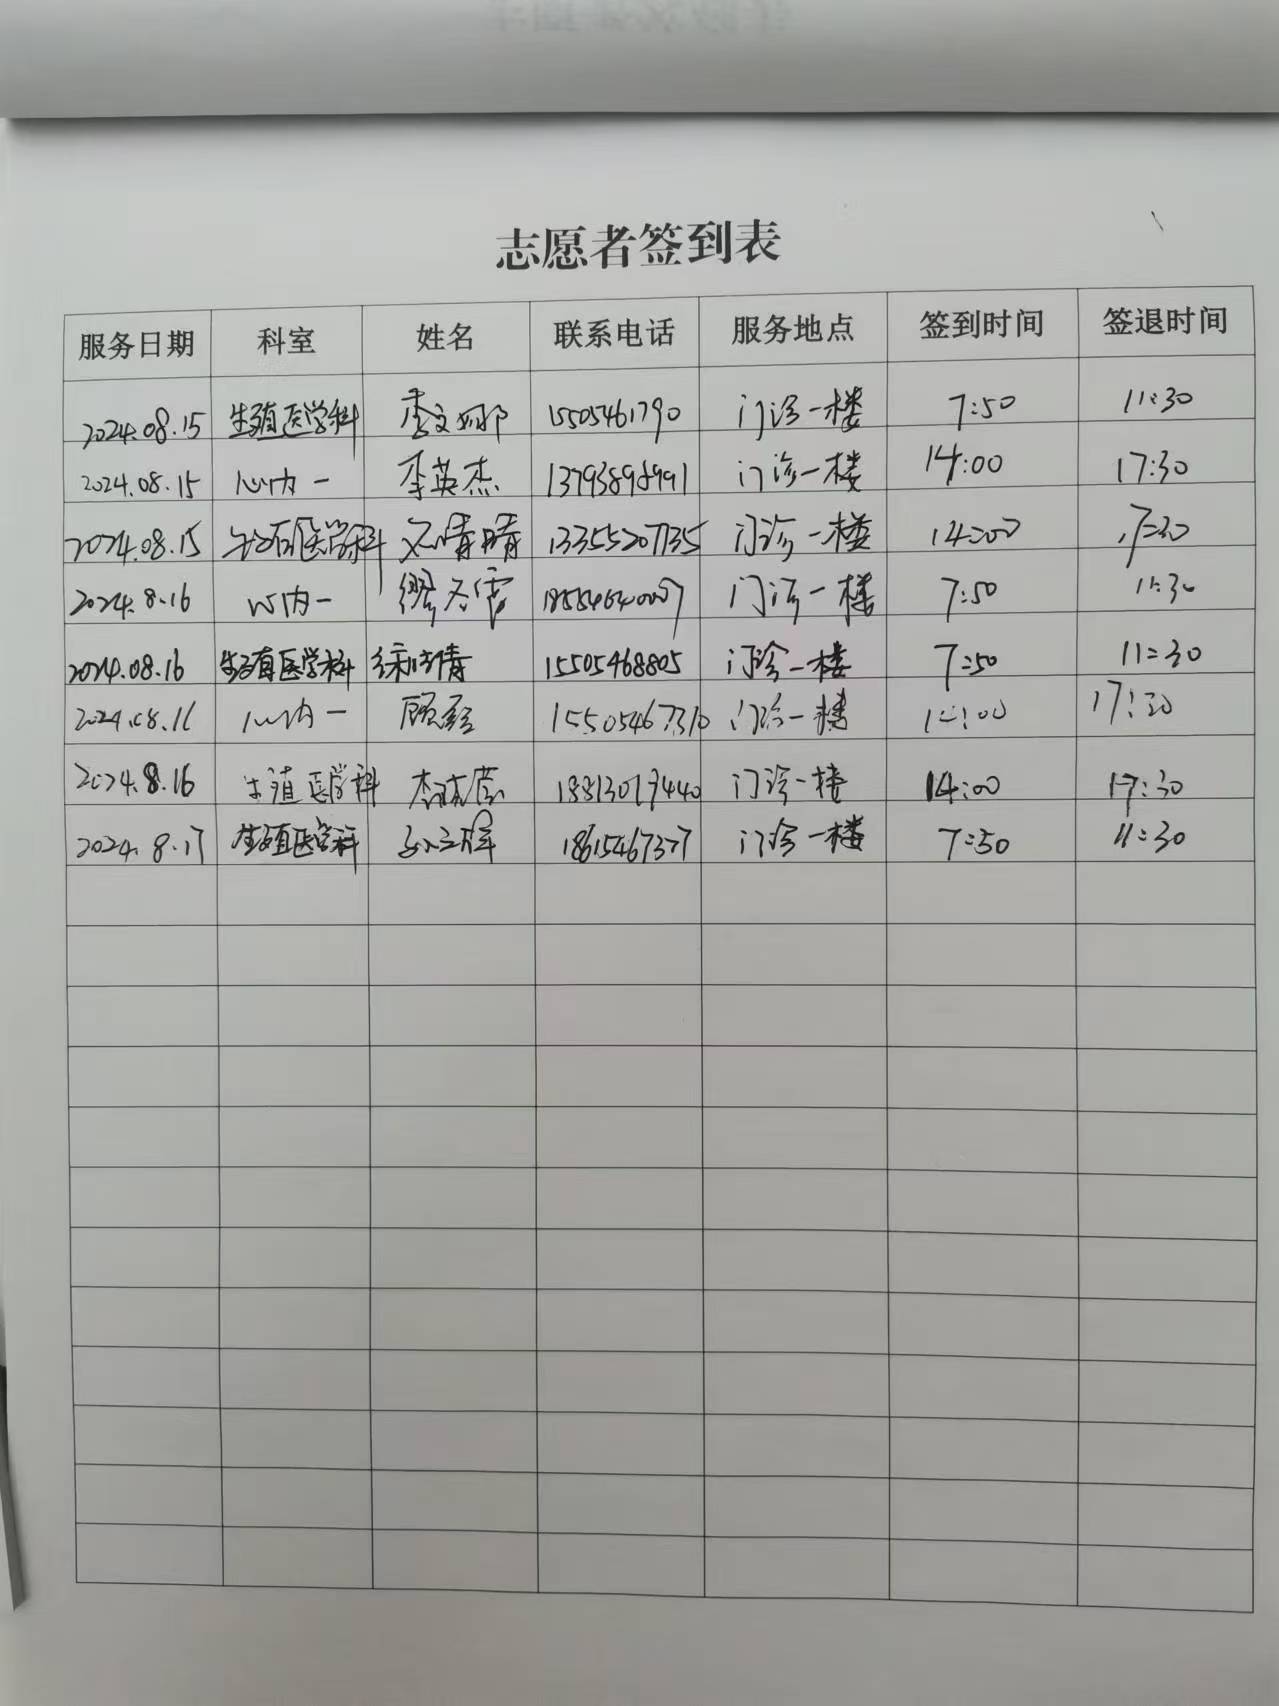 志愿者签到表
服务日期 科室 姓名 联系电话 服务地点 签到时间 签退时间
2024.08.15 生殖医学科 李文娜 15505461790 门诊一楼 7:50 11:30
2024.08.15 心内一 李英杰 门诊一楼 14:00 17:30
2024.08.15 生殖医学科 13355207735 门诊一楼 14:00 17:30
2024.8.16 心内一 门诊一楼 7:50 11:30
2024.08.16 生殖医学科 15505468805 门诊一楼 7:50 11:30
2024.08.16 心内一 15505467310 门诊一楼 14:00 17:30
2024.8.16 生殖医学科 18813019440 门诊一楼 14:00 17:30
2024.8.17 生殖医学科 门诊一楼 7:50 11:30